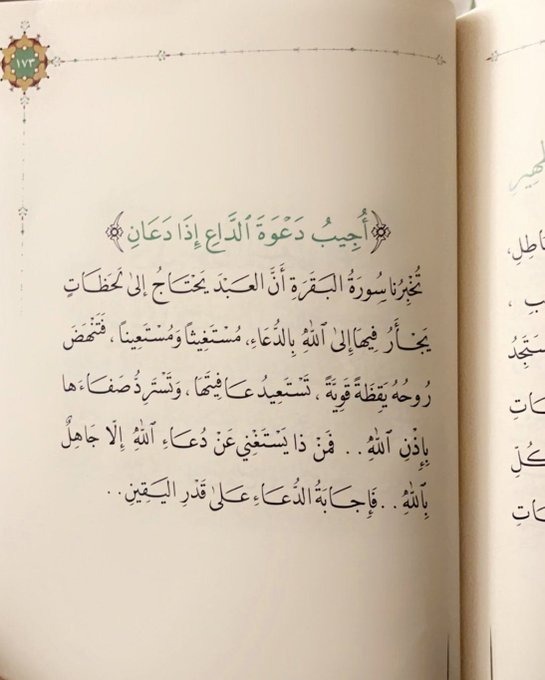 ١٧٣
﴿أُجِيبُ دَعْوَةَ ٱلدَّاعِ إِذَا دَعَانِ﴾
تُخْبِرُنا سِورَةُ البَقَرَةِ أَنَّ العَبْدَ يَحْتَاجُ إِلىٰ لَحَظَاتٍ
يَجْأَرُ فِيهَا إِلىٰ اللهِ بِالدُّعَاءِ، مُسْتَغِيثاً وَمُسْتَعِيناً، فَتَنْهَضَ
رُوحُهُ يَقِظَةً قَوِيَّةً، تَسْتَعِيدُ عَافِيَتَهَا، وَتَسْتَرِدُّ صَفَاءَهَا
بِإِذْنِ اللهِ.. فَمَنْ ذا يَسْتَغْنِي عَنْ دُعَاءِ اللهِ إِلَّا جَاهِلٌ
بِاللهِ.. فَإِجَابَةُ الدُّعَاءِ عَلىٰ قَدْرِ اليَقِينِ..